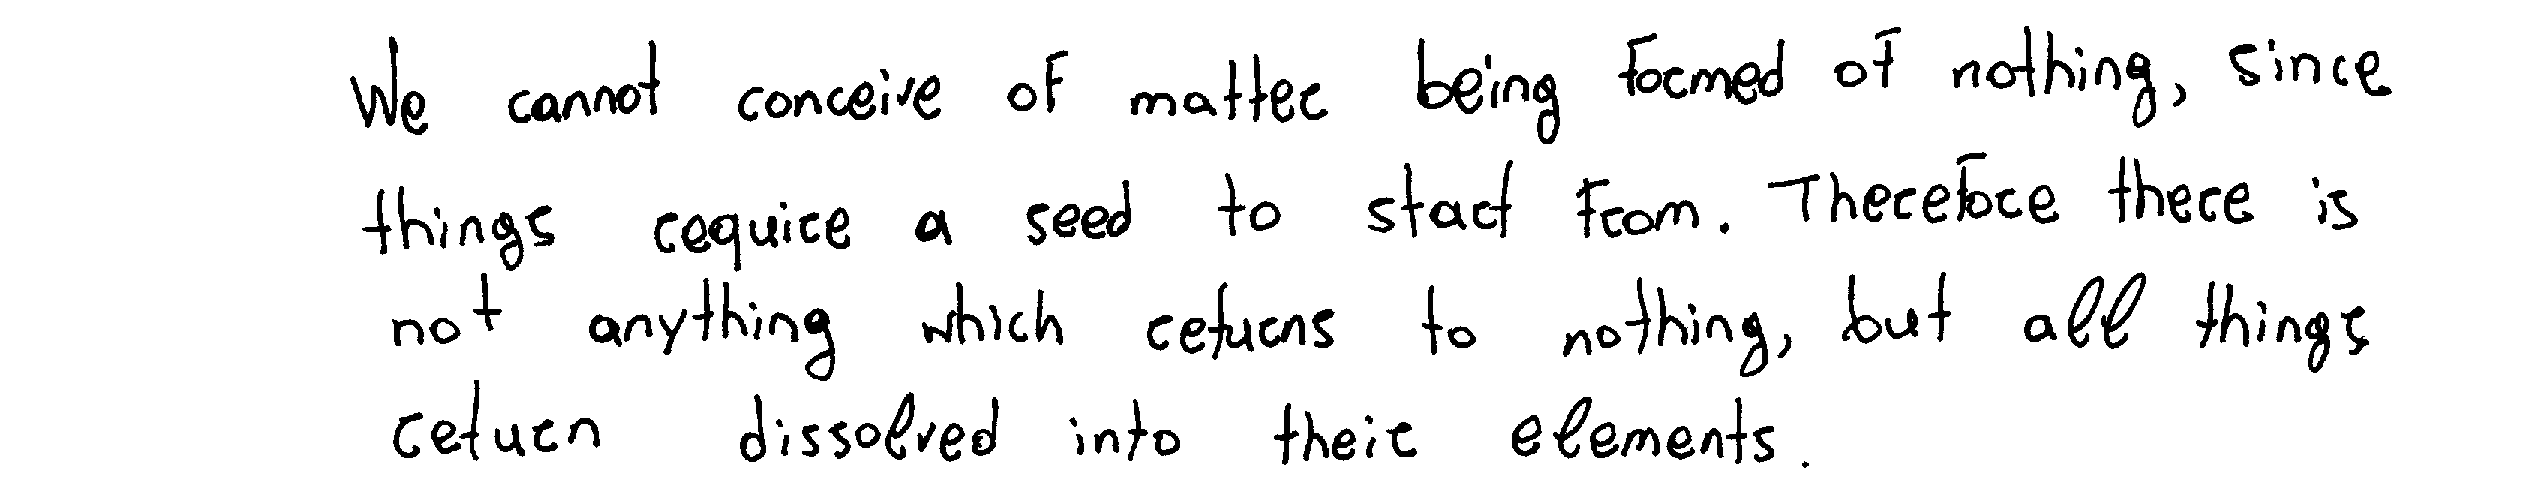 We cannot conceive of matter being formed of nothing, since
things require a seed to start from. Therefore there is
not anything which returns to nothing, but all things
return dissolved into their elements.